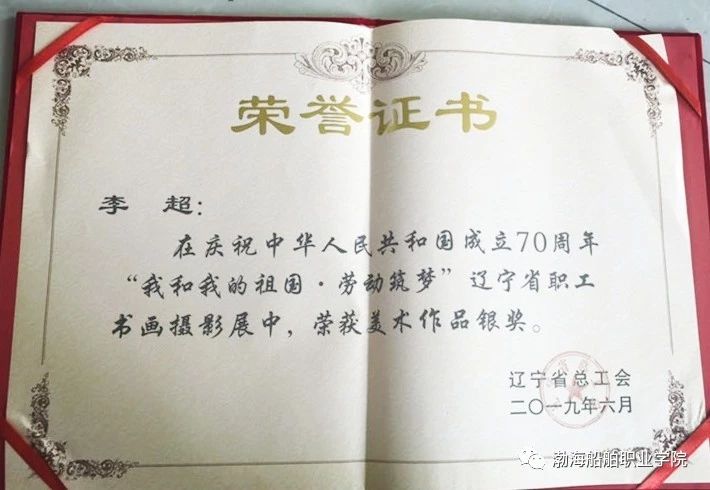 荣誉证书
李 超：
在庆祝中华人民共和国成立70周年
“我和我的祖国·劳动筑梦”辽宁省职工
书画摄影展中，荣获美术作品银奖。
辽宁省总工会
二〇一九年六月
渤海船舶职业学院